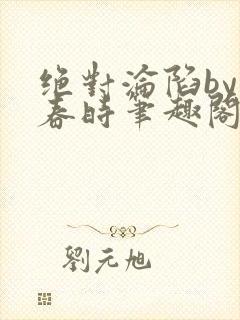 绝對淪陷by
春時筆趣閣
劉元旭